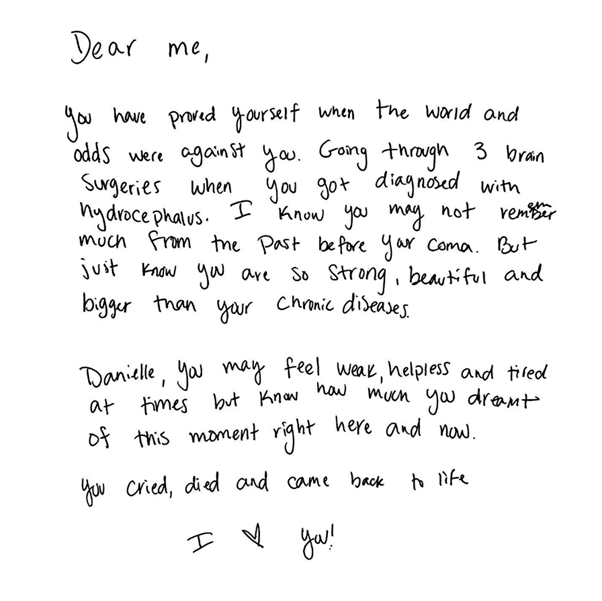 Dear me,
you have proved yourself when the world and
odds were against you. Going through 3 brain
surgeries when you got diagnosed with
hydrocephalus. I know you may not remember
much from the past before your coma. But
just know you are so strong, beautiful and
bigger than your chronic diseases.
Danielle, you may feel weak, helpless and tired
at times but know how much you dreamt
of this moment right here and now.
you cried, died and came back to life
I ♡ you!